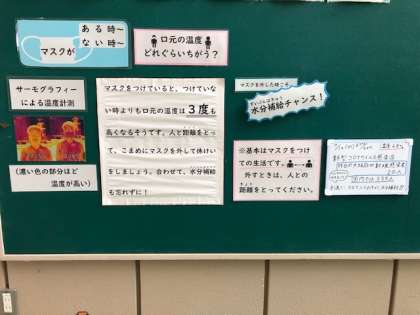 マスクが
ある時～
ない時～
口元の温度
どれぐらいちがう？
サーモグラフィー
による温度計測
(濃い色の部分ほど
温度が高い)
マスクをつけていると、つけていな
い時よりも口元の温度は3度も
高くなるそうです。人と距離をとっ
て、こまめにマスクを外して休けい
をしましょう。合わせて、水分補給
も忘れずに！
マスクを外した時こそ
すいぶんほきゅう
水分補給チャンス！
※基本はマスクをつけ
ての生活です。
外すときは、人との
距離をとってください。